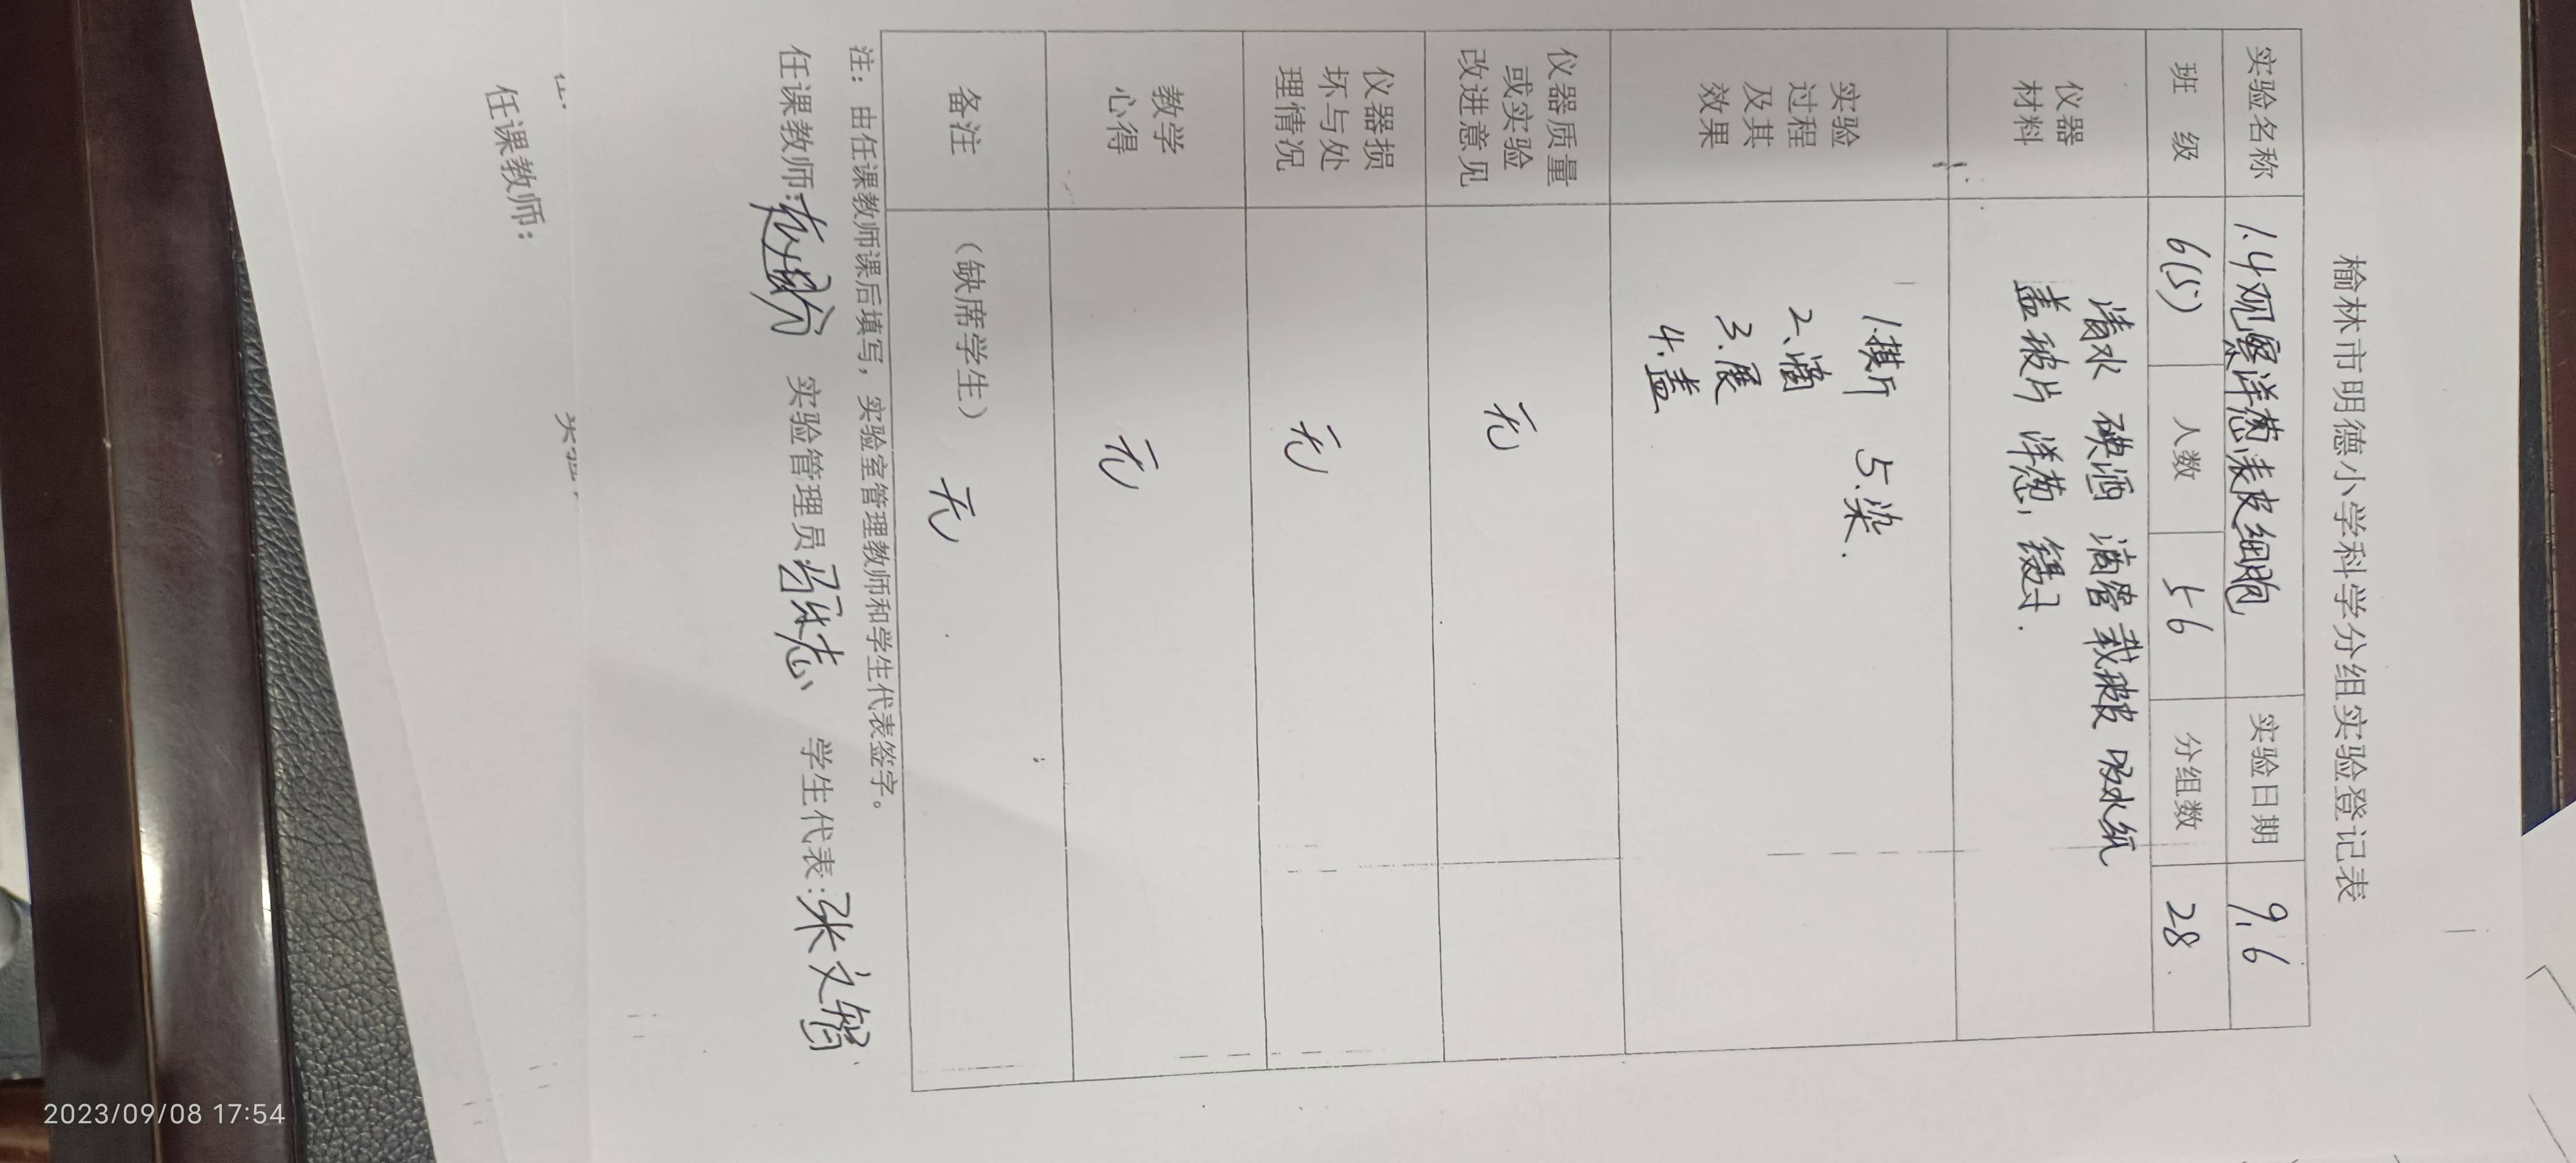 榆林市明德小学科学分组实验登记表
实验名称 1.4观察洋葱表皮细胞 实验日期 9.6
班 级 6(5) 人数 56 分组数 28
仪器
材料
清水 碘酒 滴管 载玻 吸水纸
盖玻片 洋葱, 镊子.
实验
过程
及其
效果
1.撕 5.染.
2、滴
3.展
4.盖
仪器质量
或实验
改进意见
无
仪器损
坏与处
理情况
无
教学
心得
无
备注 （缺席学生） 无
注：由任课教师课后填写，实验室管理教师和学生代表签字。
任课教师: 实验管理员: 学生代表:张文智
任课教师：
2023/09/08 17:54